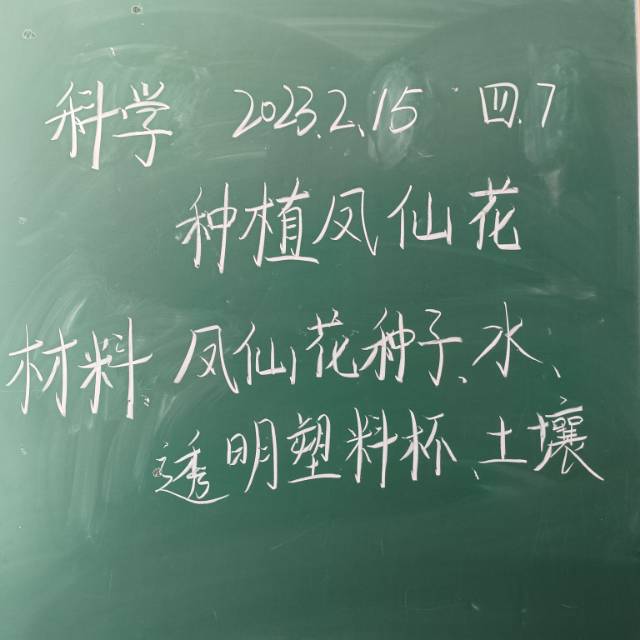 科学 2023.2.15 四.7
种植凤仙花
材料、凤仙花种子、水、
透明塑料杯、土壤